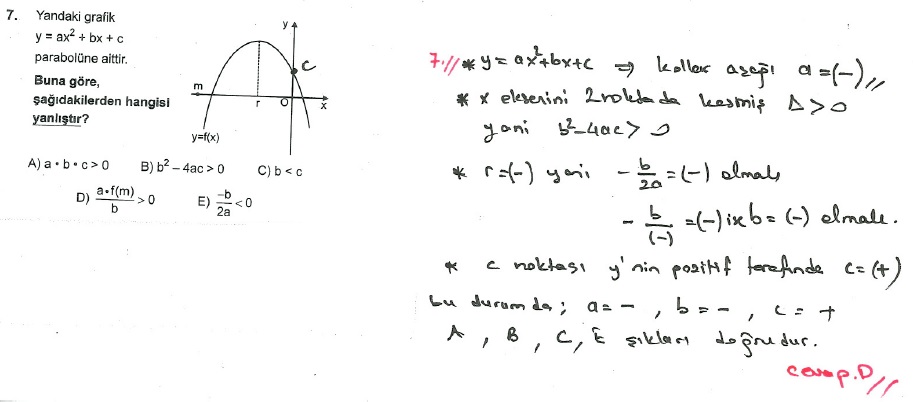 7. Yandaki grafik
y = ax² + bx + c
parabolüne aittir.
Buna göre,
şağıdakilerden hangisi
yanlıştır?
y
C
m
r
O
x
y=f(x)
A) a • b • c > 0 B) b² – 4ac > 0 C) b < c
D) a•f(m)/b > 0 E) -b/2a < 0
7.// * y = ax²+bx+c ⇒ kollar aşağı a = (-) //
* x eksenini 2 noktada kesmiş Δ > 0
yani b²-4ac > 0
* r = (-) yani - b/2a = (-) olmalı
- b/(-) = (-) ix b = (-) olmalı.
* c noktası y'nin pozitif tarafında c = (+)
bu durumda; a = - , b = - , c = +
A , B , C, E şıkları doğrudur.
cevap. D //